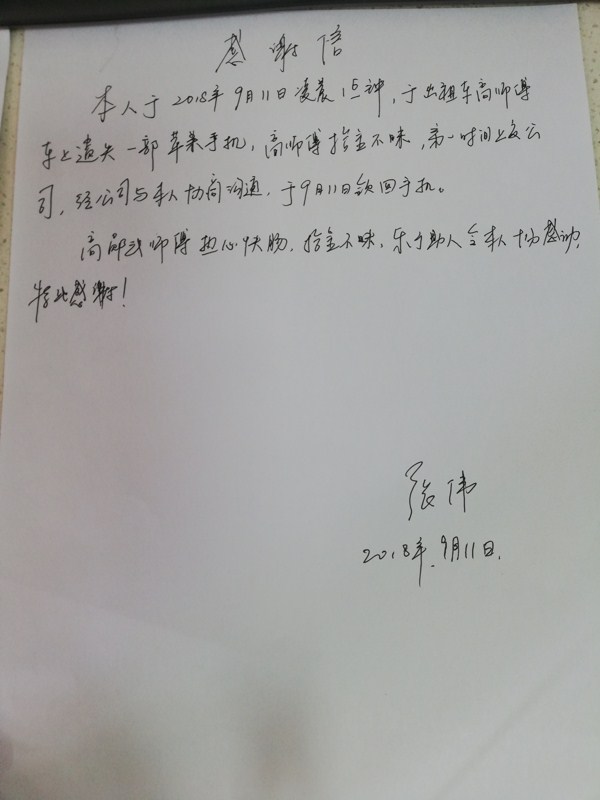 感谢信
本人于2018年9月11日凌晨1点钟,于出租车高师傅
车上遗失一部苹果手机,高师傅拾金不昧,第一时间上交公
司,经公司与本人协商沟通,于9月11日领回手机。
高师傅热心快肠,拾金不昧,乐于助人令本人十分感动,
特此感谢!
张伟
2018年.9月11日.